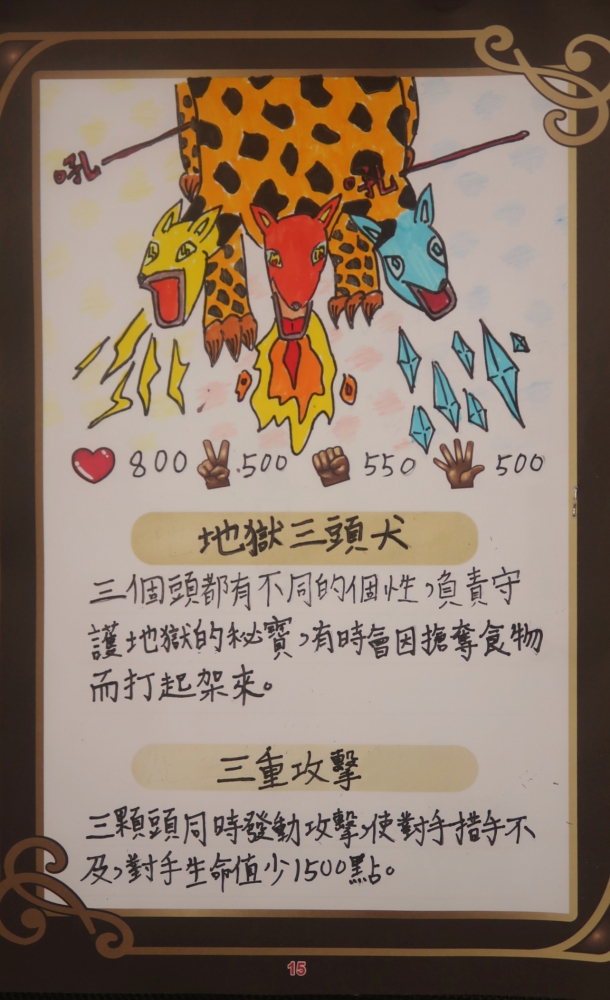 吼
吼
800 500 550 500
地獄三頭犬
三個頭都有不同的個性,負責守
護地獄的秘寶,有時會因搶奪食物
而打起架來。
三重攻擊
三顆頭同時發動攻擊,使對手措手不
及,對手生命值少1500點。
15